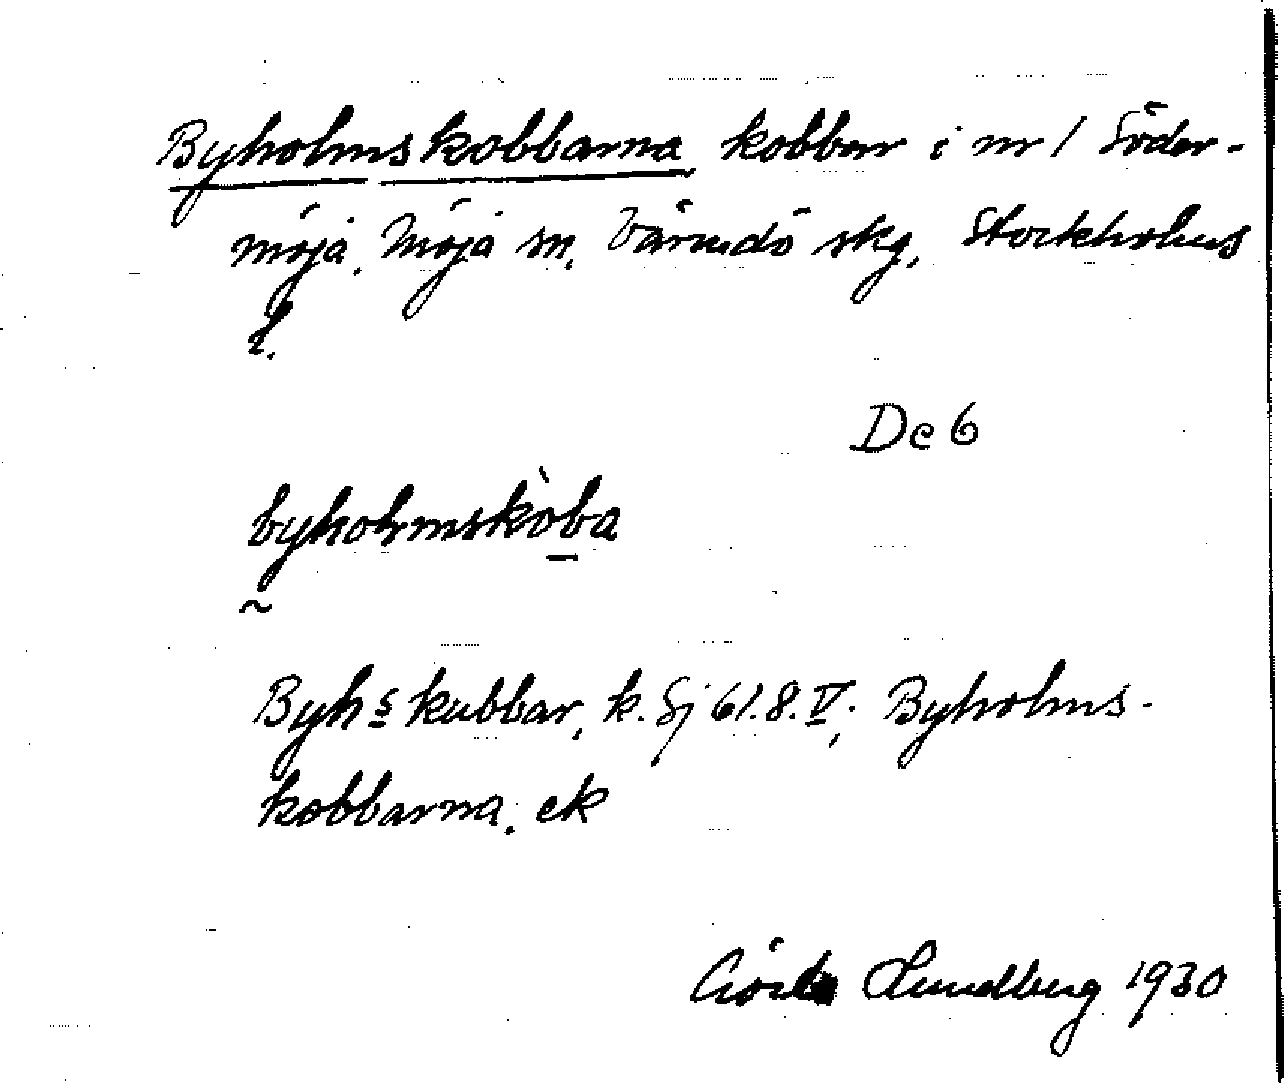 Byholmskobbarna, kobbar i nr 1 Söder-
möja, Möja sn, Värmdö skg, Stockholms
l.
De 6
byholmskòba
~
Byhs kubbar, k. Sj 61.8.V; Byholms-
kobbarna, ek
Gösta Lundberg 1930